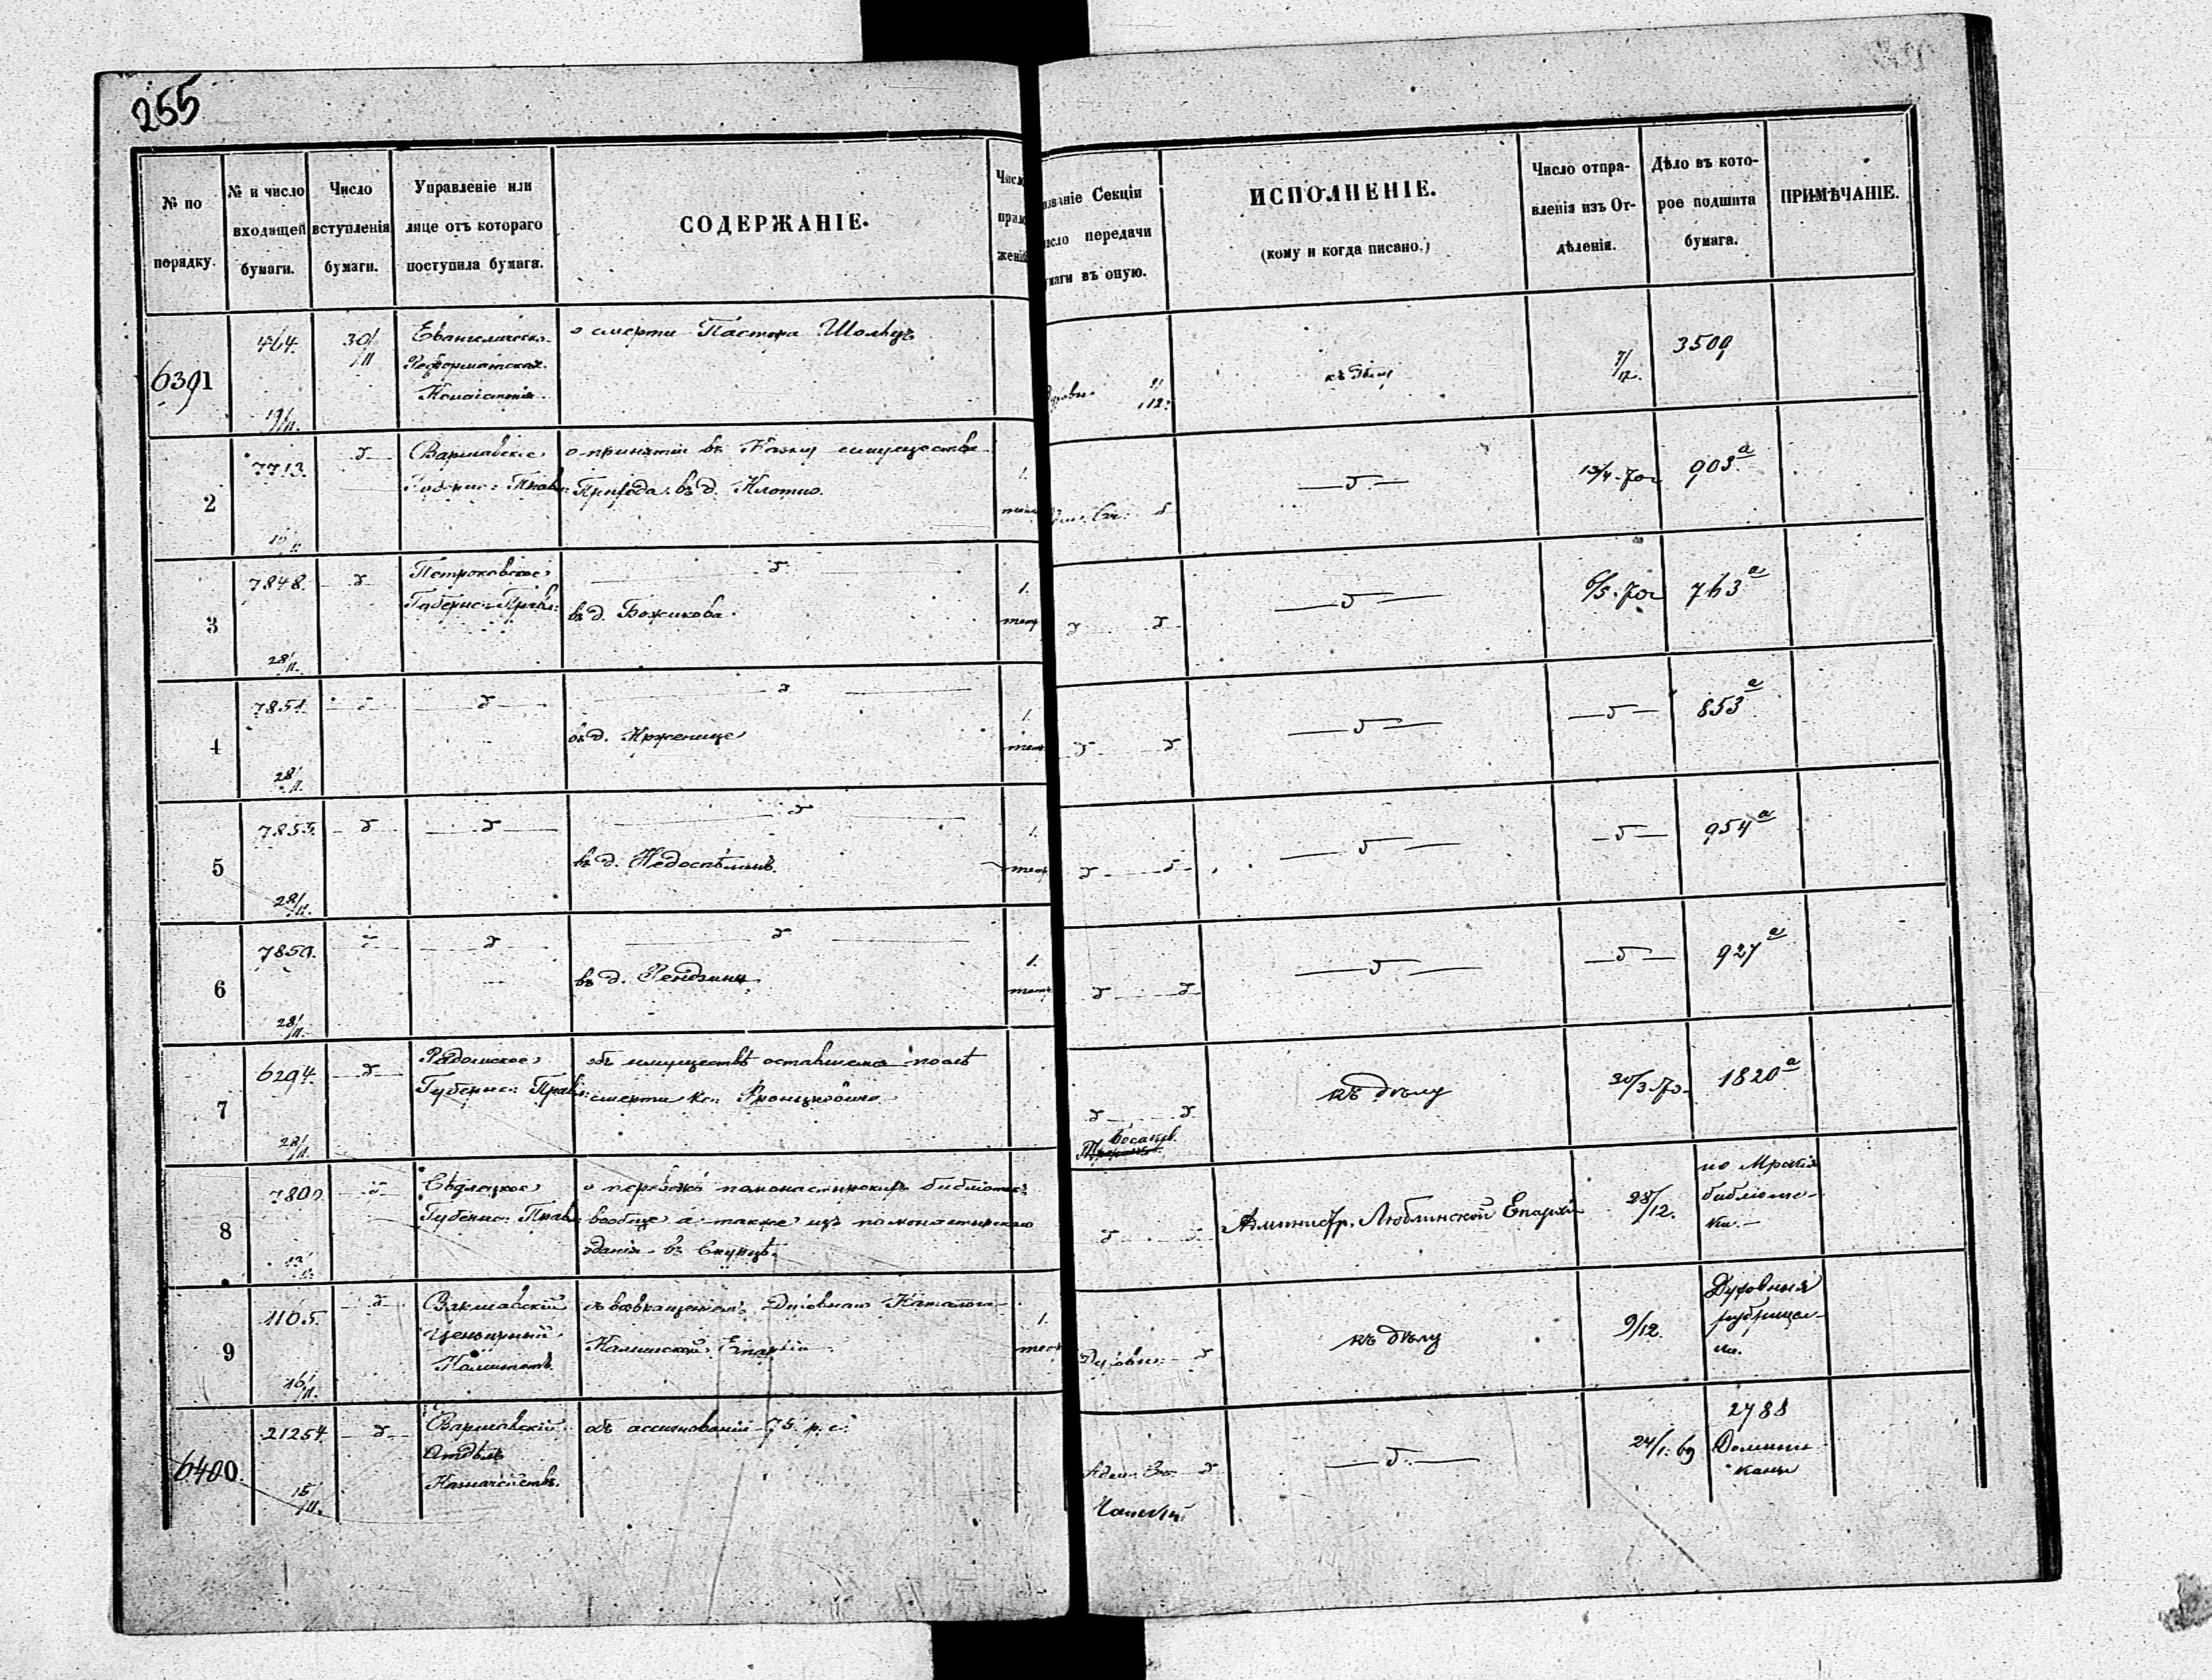 255
№ по порядку.
№ и число входящей бумаги.
Число вступленія бумаги.
Управленіе или лице отъ котораго поступила бумага.
СОДЕРЖАНІЕ.
Число прило женій
званіе Секціи
исло передачи
умаги въ оную.
ИСПОЛНЕНІЕ.
(кому и когда писано.)
Число отпра-
вленія изъ От-
дѣленія.
Дѣло въ кото-
рое подшита
бумага.
ПРИМѢЧАНІЕ.
6391
464.
19/11.
30/11
Евангелическо-
Реформатская
Консисторія
о смерти Пастора Шольцъ
къ дѣлу
7/12.
3509
2
7713.
Варшавское
Губернс: Правл:
о принятіи въ Казну имущества
Прихода въ д. Клотно.
1.
13/4 70 г
903 а
3
7848.
28/11.
Петроковское
Губернс: Правл:
въ д. Божикова.
1.
тетр.
6/5. 70 г
763 а
4
7851.
28/11.
въ д. Крженице
1.
тетр.
853 а
5
7855.
28/11.
въ д. Недоспѣлинъ.
1.
тетр.
954 а
6
7850.
28/11.
въ д. Рендзины
1.
тетр.
927 а
7
6294.
28/11.
Радомское
Губернс: Правл:
объ имуществѣ оставшемся послѣ
смерти Кс:
къ дѣлу
30/3. 70.
1820 а
8
7800
Сѣдлецкое
Губернс: Правл:
о перевозкѣ помонастырскихъ библіотекъ
вообще а также изъ помонастырскаго
зданія въ
Администр. Люблинской Епархіи
28/12.
библіоте-
ки.
9
1165.
16/11.
Варшавскій
Цензурный
Комитетъ.
съ возвращеніемъ Духовнаго Каталога
Калишской Епархіи
1.
Духовн:
къ дѣлу
9/12.
Духовныя
рубрицел-
ли.
6400
21254
15/11.
Варшавскій
Отдѣлъ
Казначействъ.
объ ассигнованіи 75 р. с.
24/1. 69
2788
Домини-
каны